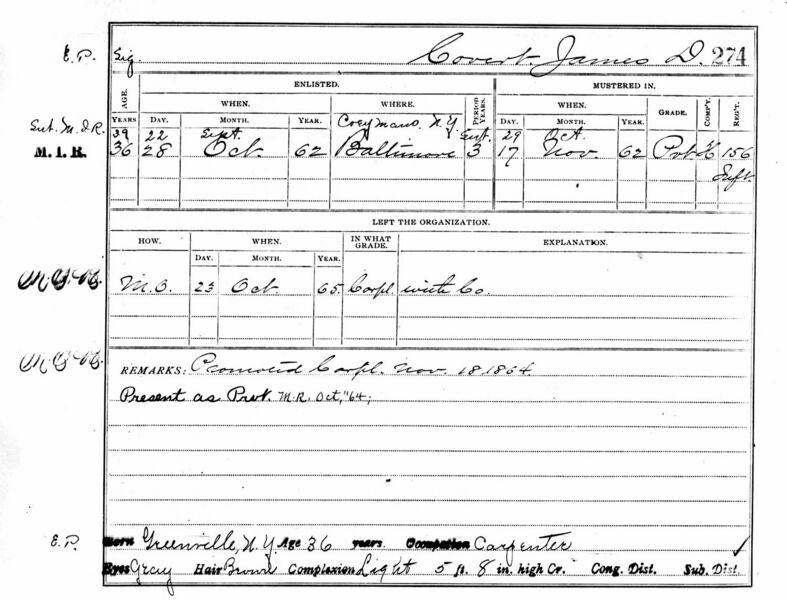 E. P. Sig. Covert James D. 274
ENLISTED. MUSTERED IN.
AGE. WHEN. WHERE. PERIOD YEARS. WHEN. GRADE. COMP'Y. REG'T.
YEARS DAY. MONTH. YEAR. DAY. MONTH. YEAR.
M. I. R. 39 22 Sept. Coeymans, N.Y. 29 Oct.
M. I. R. 36 28 Oct. 62 Baltimore 3 17 Nov. 62 Pvt 156
Inft.
LEFT THE ORGANIZATION.
HOW. WHEN. IN WHAT GRADE. EXPLANATION.
DAY. MONTH. YEAR.
M.O. 23 Oct 65. Corpl. with Co.
REMARKS: Promoted Corpl. Nov. 18, 1864
Present as Prvt. M.R. Oct, "64;
E. P. Born Greenville, N.Y. Age 36 years. Occupation Carpenter
Eyes Gray Hair Brown Complexion Light 5 ft. 8 in. high Cr. Cong. Dist. Sub. Dist.